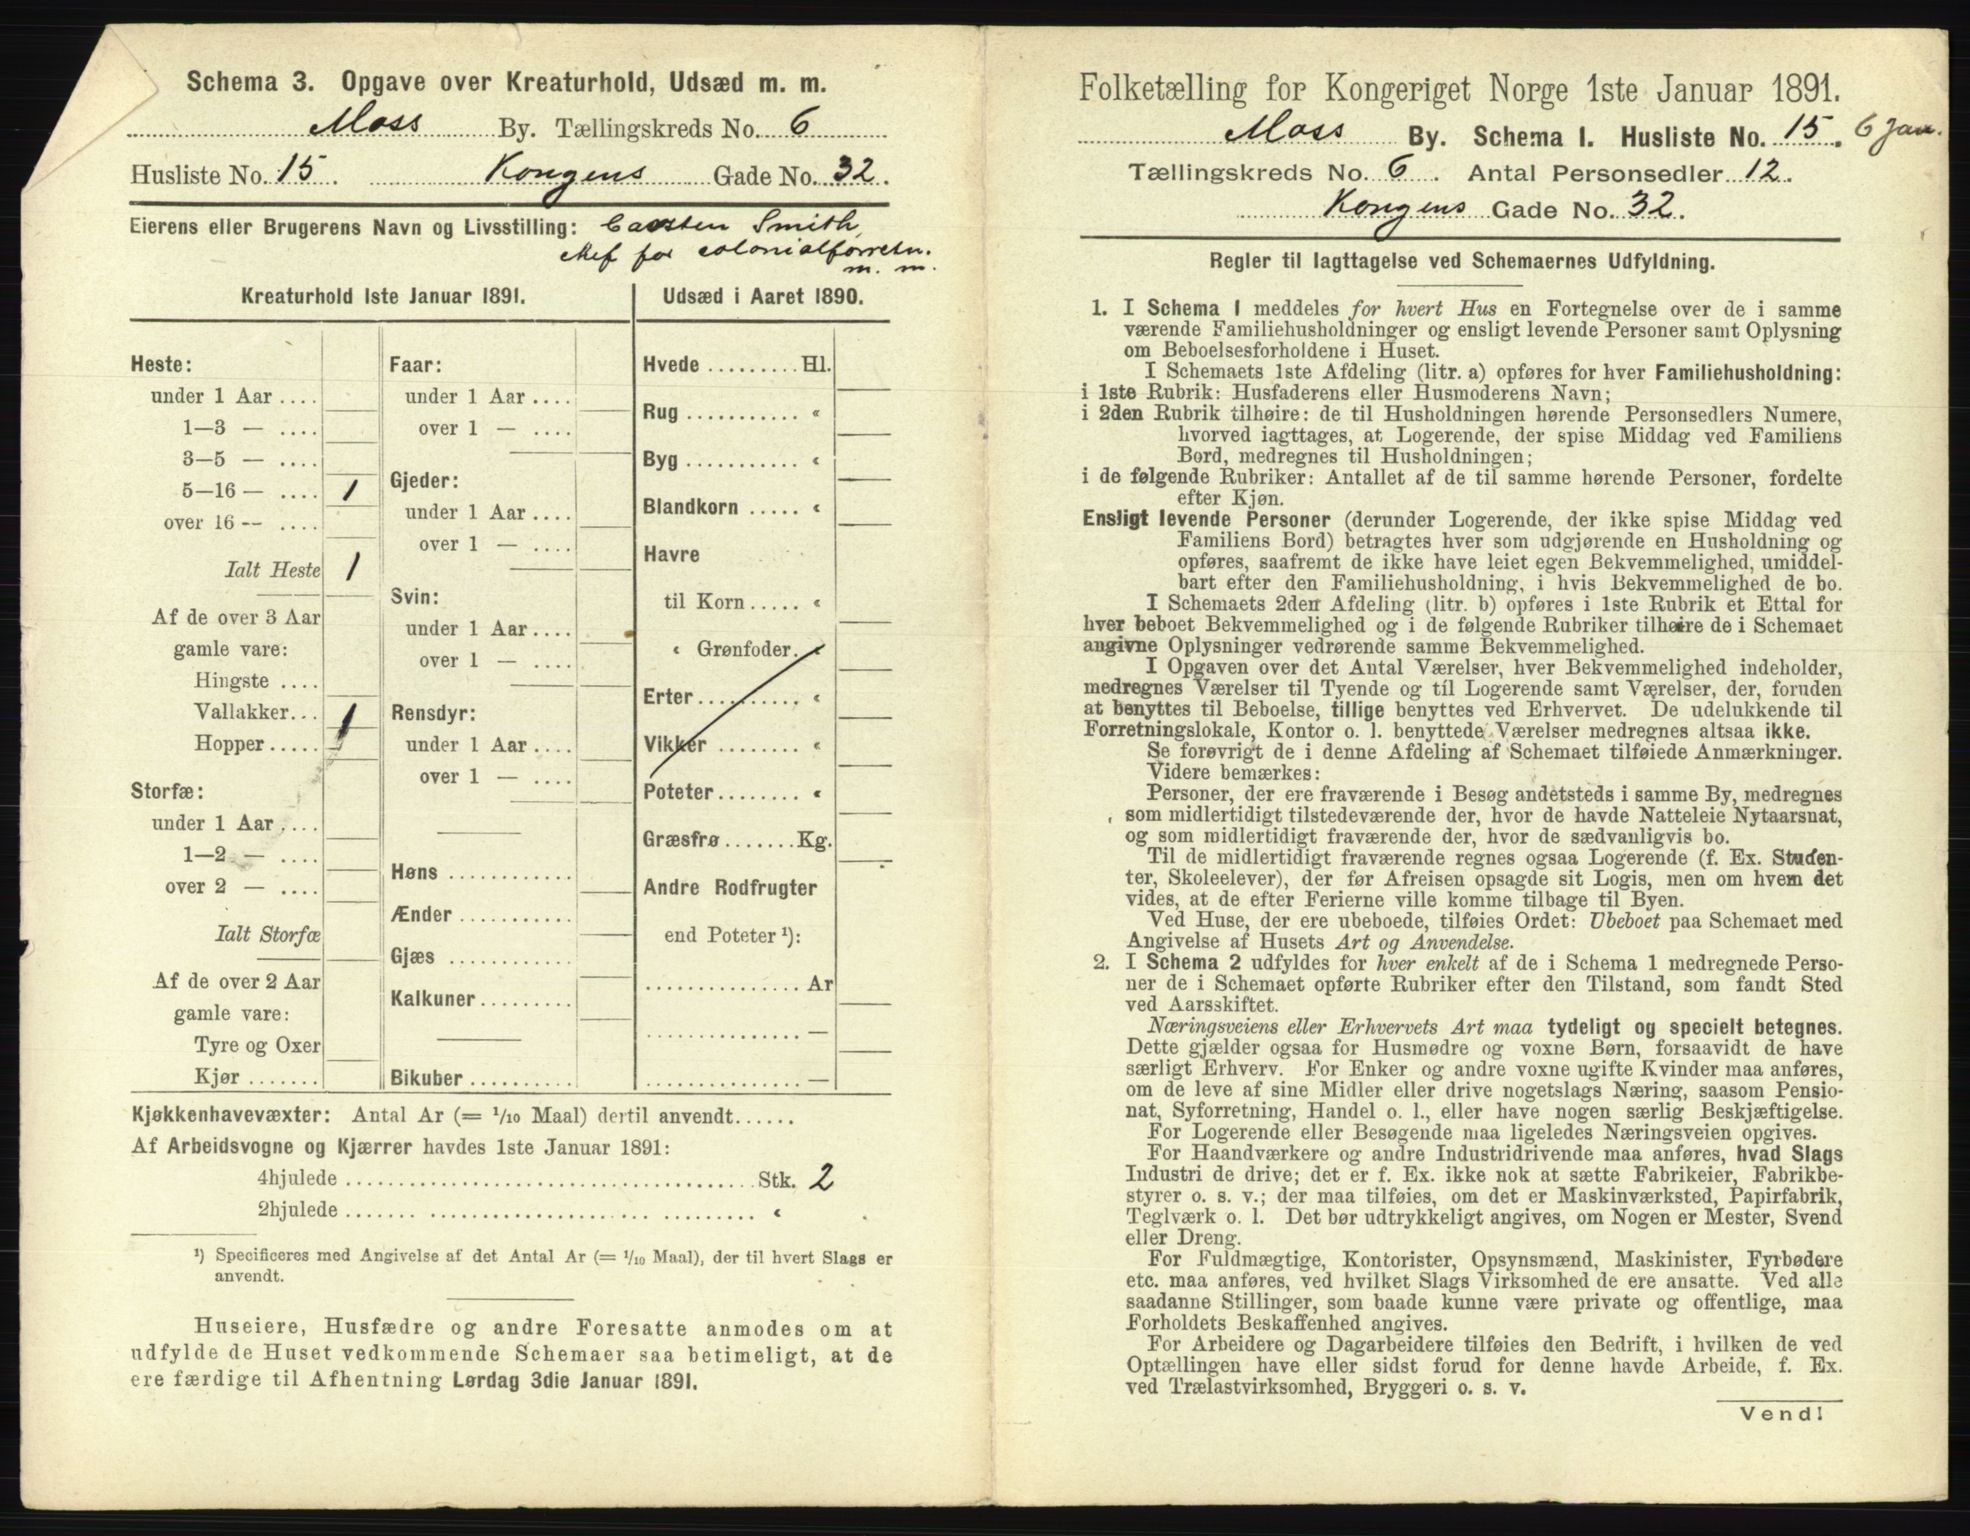 Schema 3. Opgave over Kreaturhold, Udsæd m. m.
Moss By. Tællingskreds No. 6
Husliste No. 15. Kongens Gade No. 32.
Eierens eller Brugerens Navn og Livsstilling: Carsten Smith,
Chef for colonialforretn.
m. m.
Kreaturhold 1ste Januar 1891.
Heste:
under 1 Aar ....
1—3 — ....
3—5 — ....
5—16 — .... 1
over 16 — ....
Ialt Heste 1
Af de over 3 Aar
gamle vare:
Hingste ....
Vallakker... 1
Hopper.....
Storfæ:
under 1 Aar ....
1—2 — ....
over 2 — ....
Ialt Storfæ
Af de over 2 Aar
gamle vare:
Tyre og Oxer
Kjør .......
Faar:
under 1 Aar ....
over 1 — ....
Gjeder:
under 1 Aar ....
over 1 — ....
Svin:
under 1 Aar ....
over 1 — ....
Rensdyr:
under 1 Aar ....
over 1 — ....
Høns ............
Ænder ...........
Gjæs ............
Kalkuner.........
Bikuber ..........
Udsæd i Aaret 1890.
Hvede ......... Hl.
Rug ........... «
Byg ........... «
Blandkorn ..... «
Havre
til Korn ..... «
« Grønfoder. «
Erter .......... «
Vikker ........ «
Poteter........ «
Græsfrø ....... Kg.
Andre Rodfrugter
end Poteter ¹):
............... Ar
............... —
............... —
Kjøkkenhavevæxter: Antal Ar (= 1/10 Maal) dertil anvendt......
Af Arbeidsvogne og Kjærrer havdes 1ste Januar 1891:
4hjulede ..................................... Stk. 2
2hjulede ..................................... «
¹) Specificeres med Angivelse af det Antal Ar (= 1/10 Maal), der til hvert Slags er
anvendt.
Huseiere, Husfædre og andre Foresatte anmodes om at
udfylde de Huset vedkommende Schemaer saa betimeligt, at de
ere færdige til Afhentning Lørdag 3die Januar 1891.
Folketælling for Kongeriget Norge 1ste Januar 1891.
Moss By. Schema 1. Husliste No. 15. 6 Jan.
Tællingskreds No. 6. Antal Personsedler 12.
Kongens Gade No. 32.
Regler til Iagttagelse ved Schemaernes Udfyldning.
1. I Schema 1 meddeles for hvert Hus en Fortegnelse over de i samme
værende Familiehusholdninger og ensligt levende Personer samt Oplysning
om Beboelsesforholdene i Huset.
I Schemaets 1ste Afdeling (litr. a) opføres for hver Familiehusholdning:
i 1ste Rubrik: Husfaderens eller Husmoderens Navn;
i 2den Rubrik tilhøire: de til Husholdningen hørende Personsedlers Numere,
hvorved iagttages, at Logerende, der spise Middag ved Familiens
Bord, medregnes til Husholdningen;
i de følgende Rubriker: Antallet af de til samme hørende Personer, fordelte
efter Kjøn.
Ensligt levende Personer (derunder Logerende, der ikke spise Middag ved
Familiens Bord) betragtes hver som udgjørende en Husholdning og
opføres, saafremt de ikke have leiet egen Bekvemmelighed, umiddel-
bart efter den Familiehusholdning, i hvis Bekvemmelighed de bo.
I Schemaets 2den Afdeling (litr. b) opføres i 1ste Rubrik et Ettal for
hver beboet Bekvemmelighed og i de følgende Rubriker tilhøire de i Schemaet
angivne Oplysninger vedrørende samme Bekvemmelighed.
I Opgaven over det Antal Værelser, hver Bekvemmelighed indeholder,
medregnes Værelser til Tyende og til Logerende samt Værelser, der, foruden
at benyttes til Beboelse, tillige benyttes ved Erhvervet. De udelukkende til
Forretningslokale, Kontor o. l. benyttede Værelser medregnes altsaa ikke.
Se forøvrigt de i denne Afdeling af Schemaet tilføiede Anmærkninger.
Videre bemærkes:
Personer, der ere fraværende i Besøg andetsteds i samme By, medregnes
som midlertidigt tilstedeværende der, hvor de havde Natteleie Nytaarsnat,
og som midlertidigt fraværende der, hvor de sædvanligvis bo.
Til de midlertidigt fraværende regnes ogsaa Logerende (f. Ex. Studen-
ter, Skoleelever), der før Afreisen opsagde sit Logis, men om hvem det
vides, at de efter Ferierne ville komme tilbage til Byen.
Ved Huse, der ere ubeboede, tilføies Ordet: Ubeboet paa Schemaet med
Angivelse af Husets Art og Anvendelse.
2. I Schema 2 udfyldes for hver enkelt af de i Schema 1 medregnede Perso-
ner de i Schemaet opførte Rubriker efter den Tilstand, som fandt Sted
ved Aarsskiftet.
Næringsveiens eller Erhvervets Art maa tydeligt og specielt betegnes.
Dette gjælder ogsaa for Husmødre og voxne Børn, forsaavidt de have
særligt Erhverv. For Enker og andre voxne ugifte Kvinder maa anføres,
om de leve af sine Midler eller drive nogetslags Næring, saasom Pensio-
nat, Syforretning, Handel o. l., eller have nogen særlig Beskjæftigelse.
For Logerende eller Besøgende maa ligeledes Næringsveien opgives.
For Haandværkere og andre Industridrivende maa anføres, hvad Slags
Industri de drive; det er f. Ex. ikke nok at sætte Fabrikeier, Fabrikbe-
styrer o. s. v.; der maa tilføies, om det er Maskinværksted, Papirfabrik,
Teglværk o. l. Det bør udtrykkeligt angives, om Nogen er Mester, Svend
eller Dreng.
For Fuldmægtige, Kontorister, Opsynsmænd, Maskinister, Fyrbødere
etc. maa anføres, ved hvilket Slags Virksomhed de ere ansatte. Ved alle
saadanne Stillinger, som baade kunne være private og offentlige, maa
Forholdets Beskaffenhed angives.
For Arbeidere og Dagarbeidere tilføies den Bedrift, i hvilken de ved
Optællingen have eller sidst forud for denne havde Arbeide, f. Ex.
ved Trælastvirksomhed, Bryggeri o. s. v.
Vend!